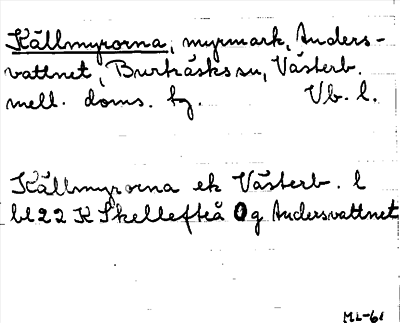 Källmyrorna, myrmark, Anders-
vattnet, Burträsks sn, Västerb.
mell. doms. fg. Vb. l.
Källmyrorna ek Västerb. l
bl 22 K Skellefteå Og Andersvattnet
ML-61